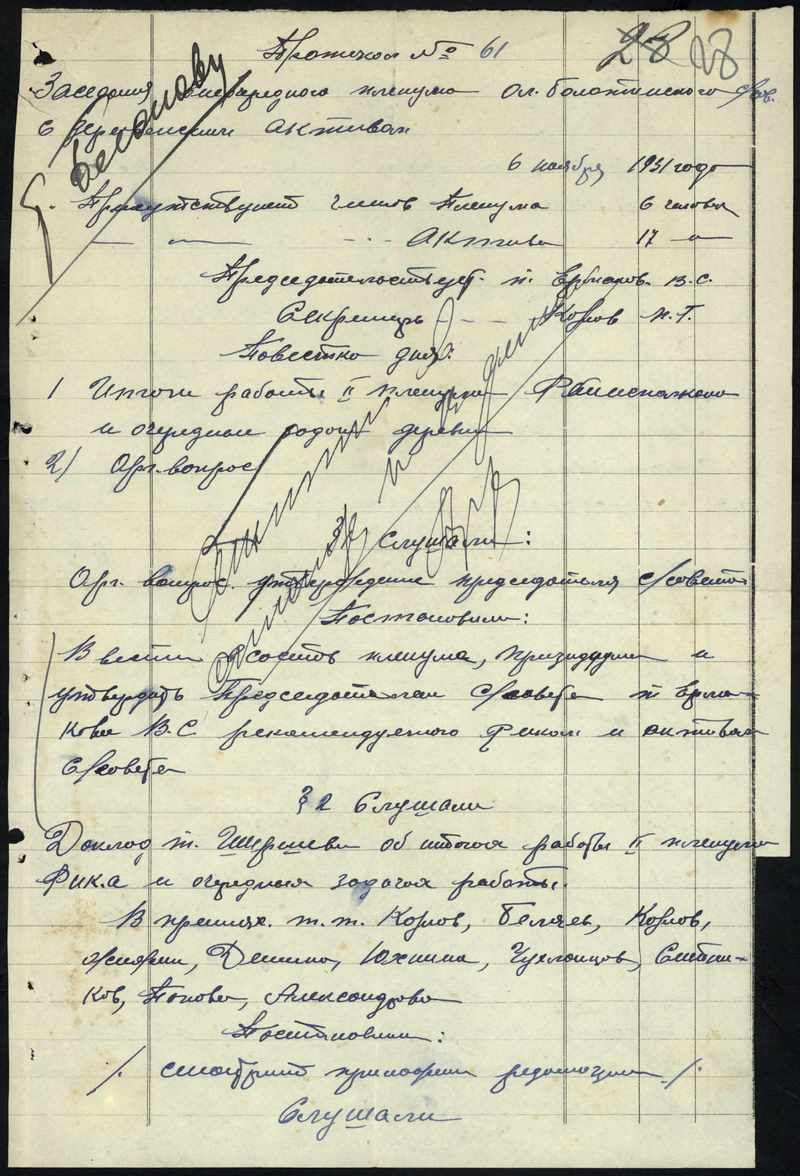 Протокол № 61
28 28
Заседания очередного пленума Ол. болотинского с/сов.
с деревенским активом
6 ноября 1931 года
Присутствует членов Пленума 6 человек
— „ — Актива 17 —„—
Председательствует т. Ермаков В.С.
Секретарь — Козлов
Повестка дня:
1 Итоги работы II пленума Райисполкома
и очередные задачи деревни
2/ Орг. вопрос
Слушали:
Орг. вопрос. утверждение председателя с/совета
Постановили:
Ввести в состав пленума, президиума и
утвердить Председателем С/совета т Ерма-
кова В.С. рекомендуемого Риком и активом
С/совета
§ 2 Слушали
Доклад т. Ширшева об итогах работы II пленума
РИК.а и очередных задачах работы.
В прениях. т.т. Козлов, Беляев, Козлов,
Демина, Юхнина, Чухломцов,
Попова, Александрова
Постановили:
/. смотрите резолюцию ./.
Слушали